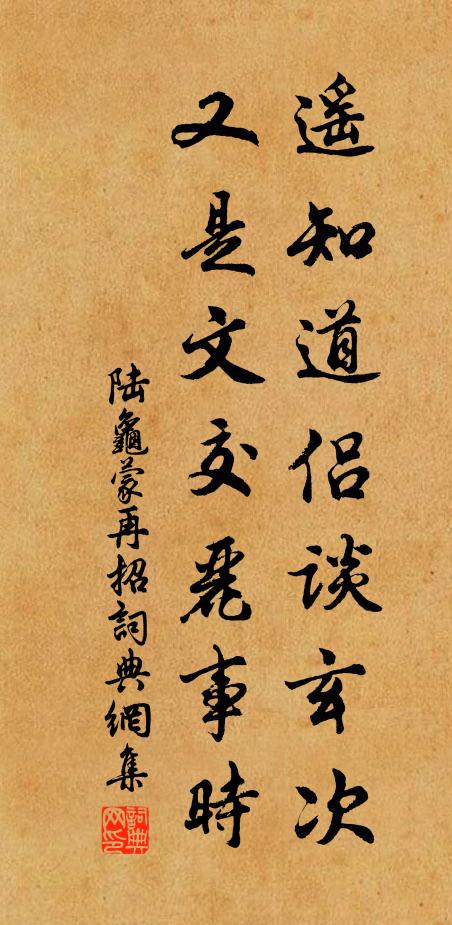 遥知道侣談玄次
又是文交麗事時
陆龜蒙再招詞典網集
詞典网印